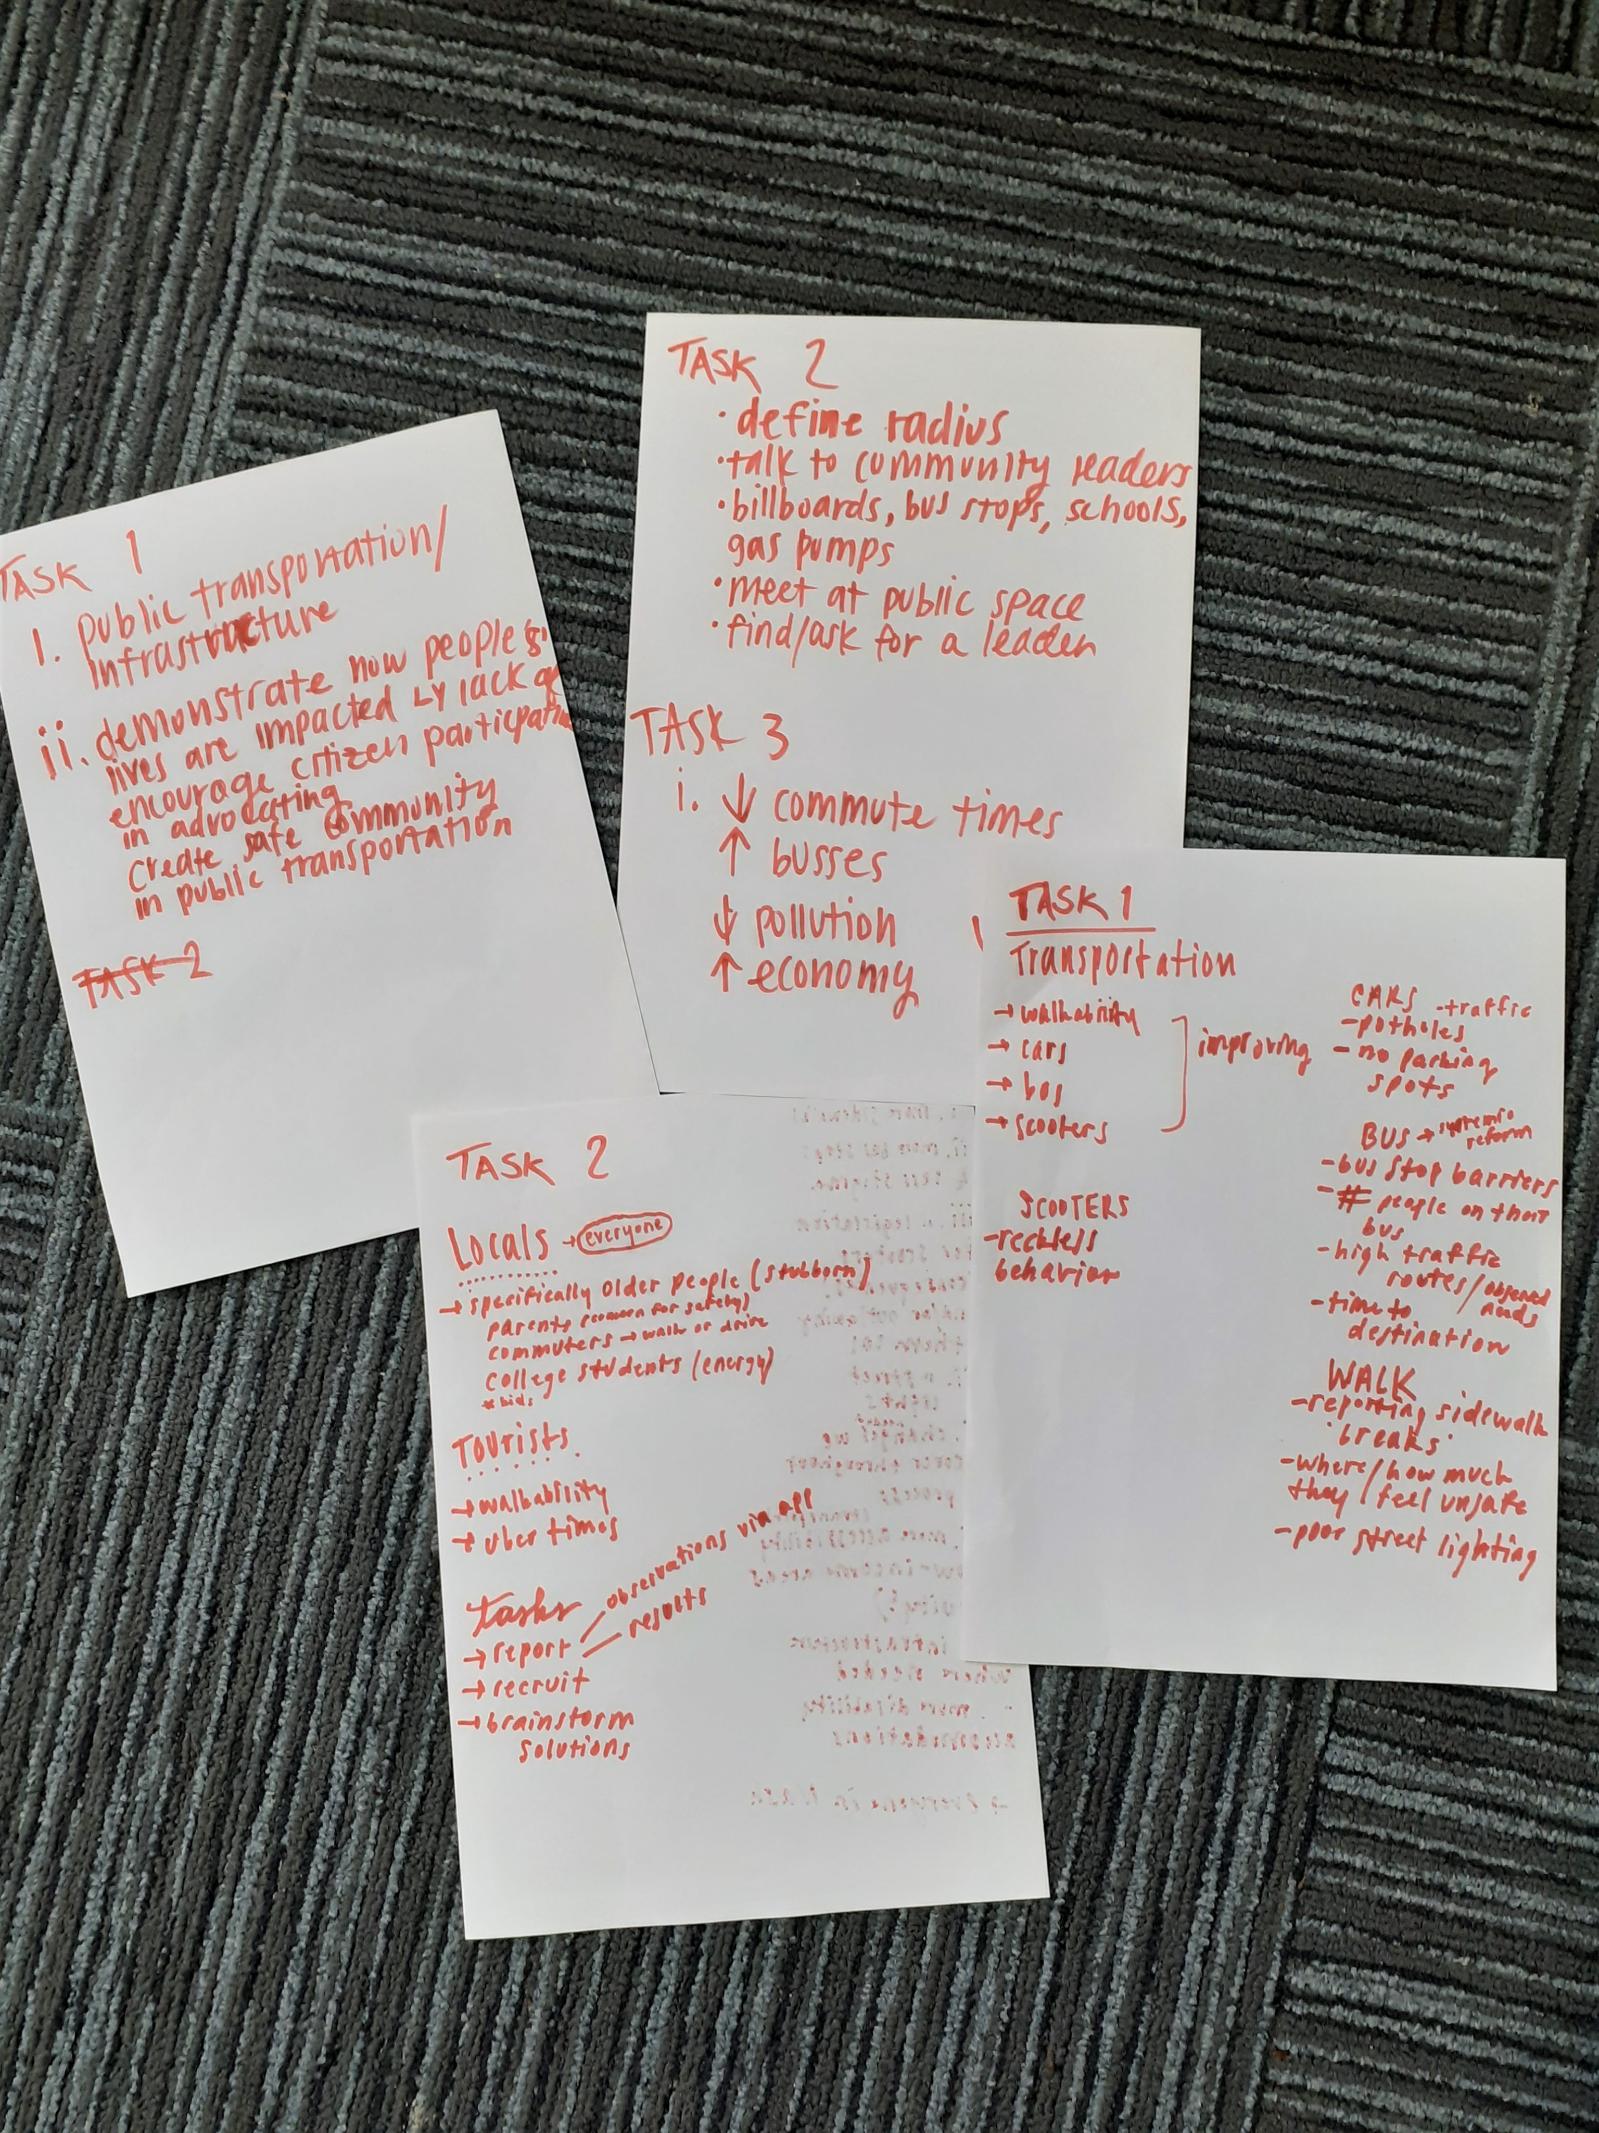 TASK 1
i. public transportation/
infrastructure
ii. demonstrate how people's
lives are impacted by lack of
encourage citizen participation
in advocating
create safe community
in public transportation
TASK 2
TASK 2
• define radius
• talk to community leaders
• billboards, bus stops, schools,
gas pumps
• meet at public space
• find/ask for a leader
TASK 3
i. ↓ commute times
↑ busses
↓ pollution
↑ economy
TASK 1
Transportation
→ walkability
→ cars
→ bus
→ scooters
improving
SCOOTERS
- reckless
behavior
CARS - traffic
- potholes
- no parking
spots
BUS → systemic
reform
- bus stop barriers
- # people on their
bus
- high traffic
routes/observed
needs
- time to
destination
WALK
- reporting sidewalk
breaks
- where/how much
they feel unsafe
- poor street lighting
TASK 2
Locals → everyone
→ specifically older people (stubborn)
parents (concern for safety)
commuters → walk or drive
college students (energy)
* kids
Tourists
→ walkability
→ uber times
tasks
→ report
observations via app
results
→ recruit
→ brainstorm
solutions